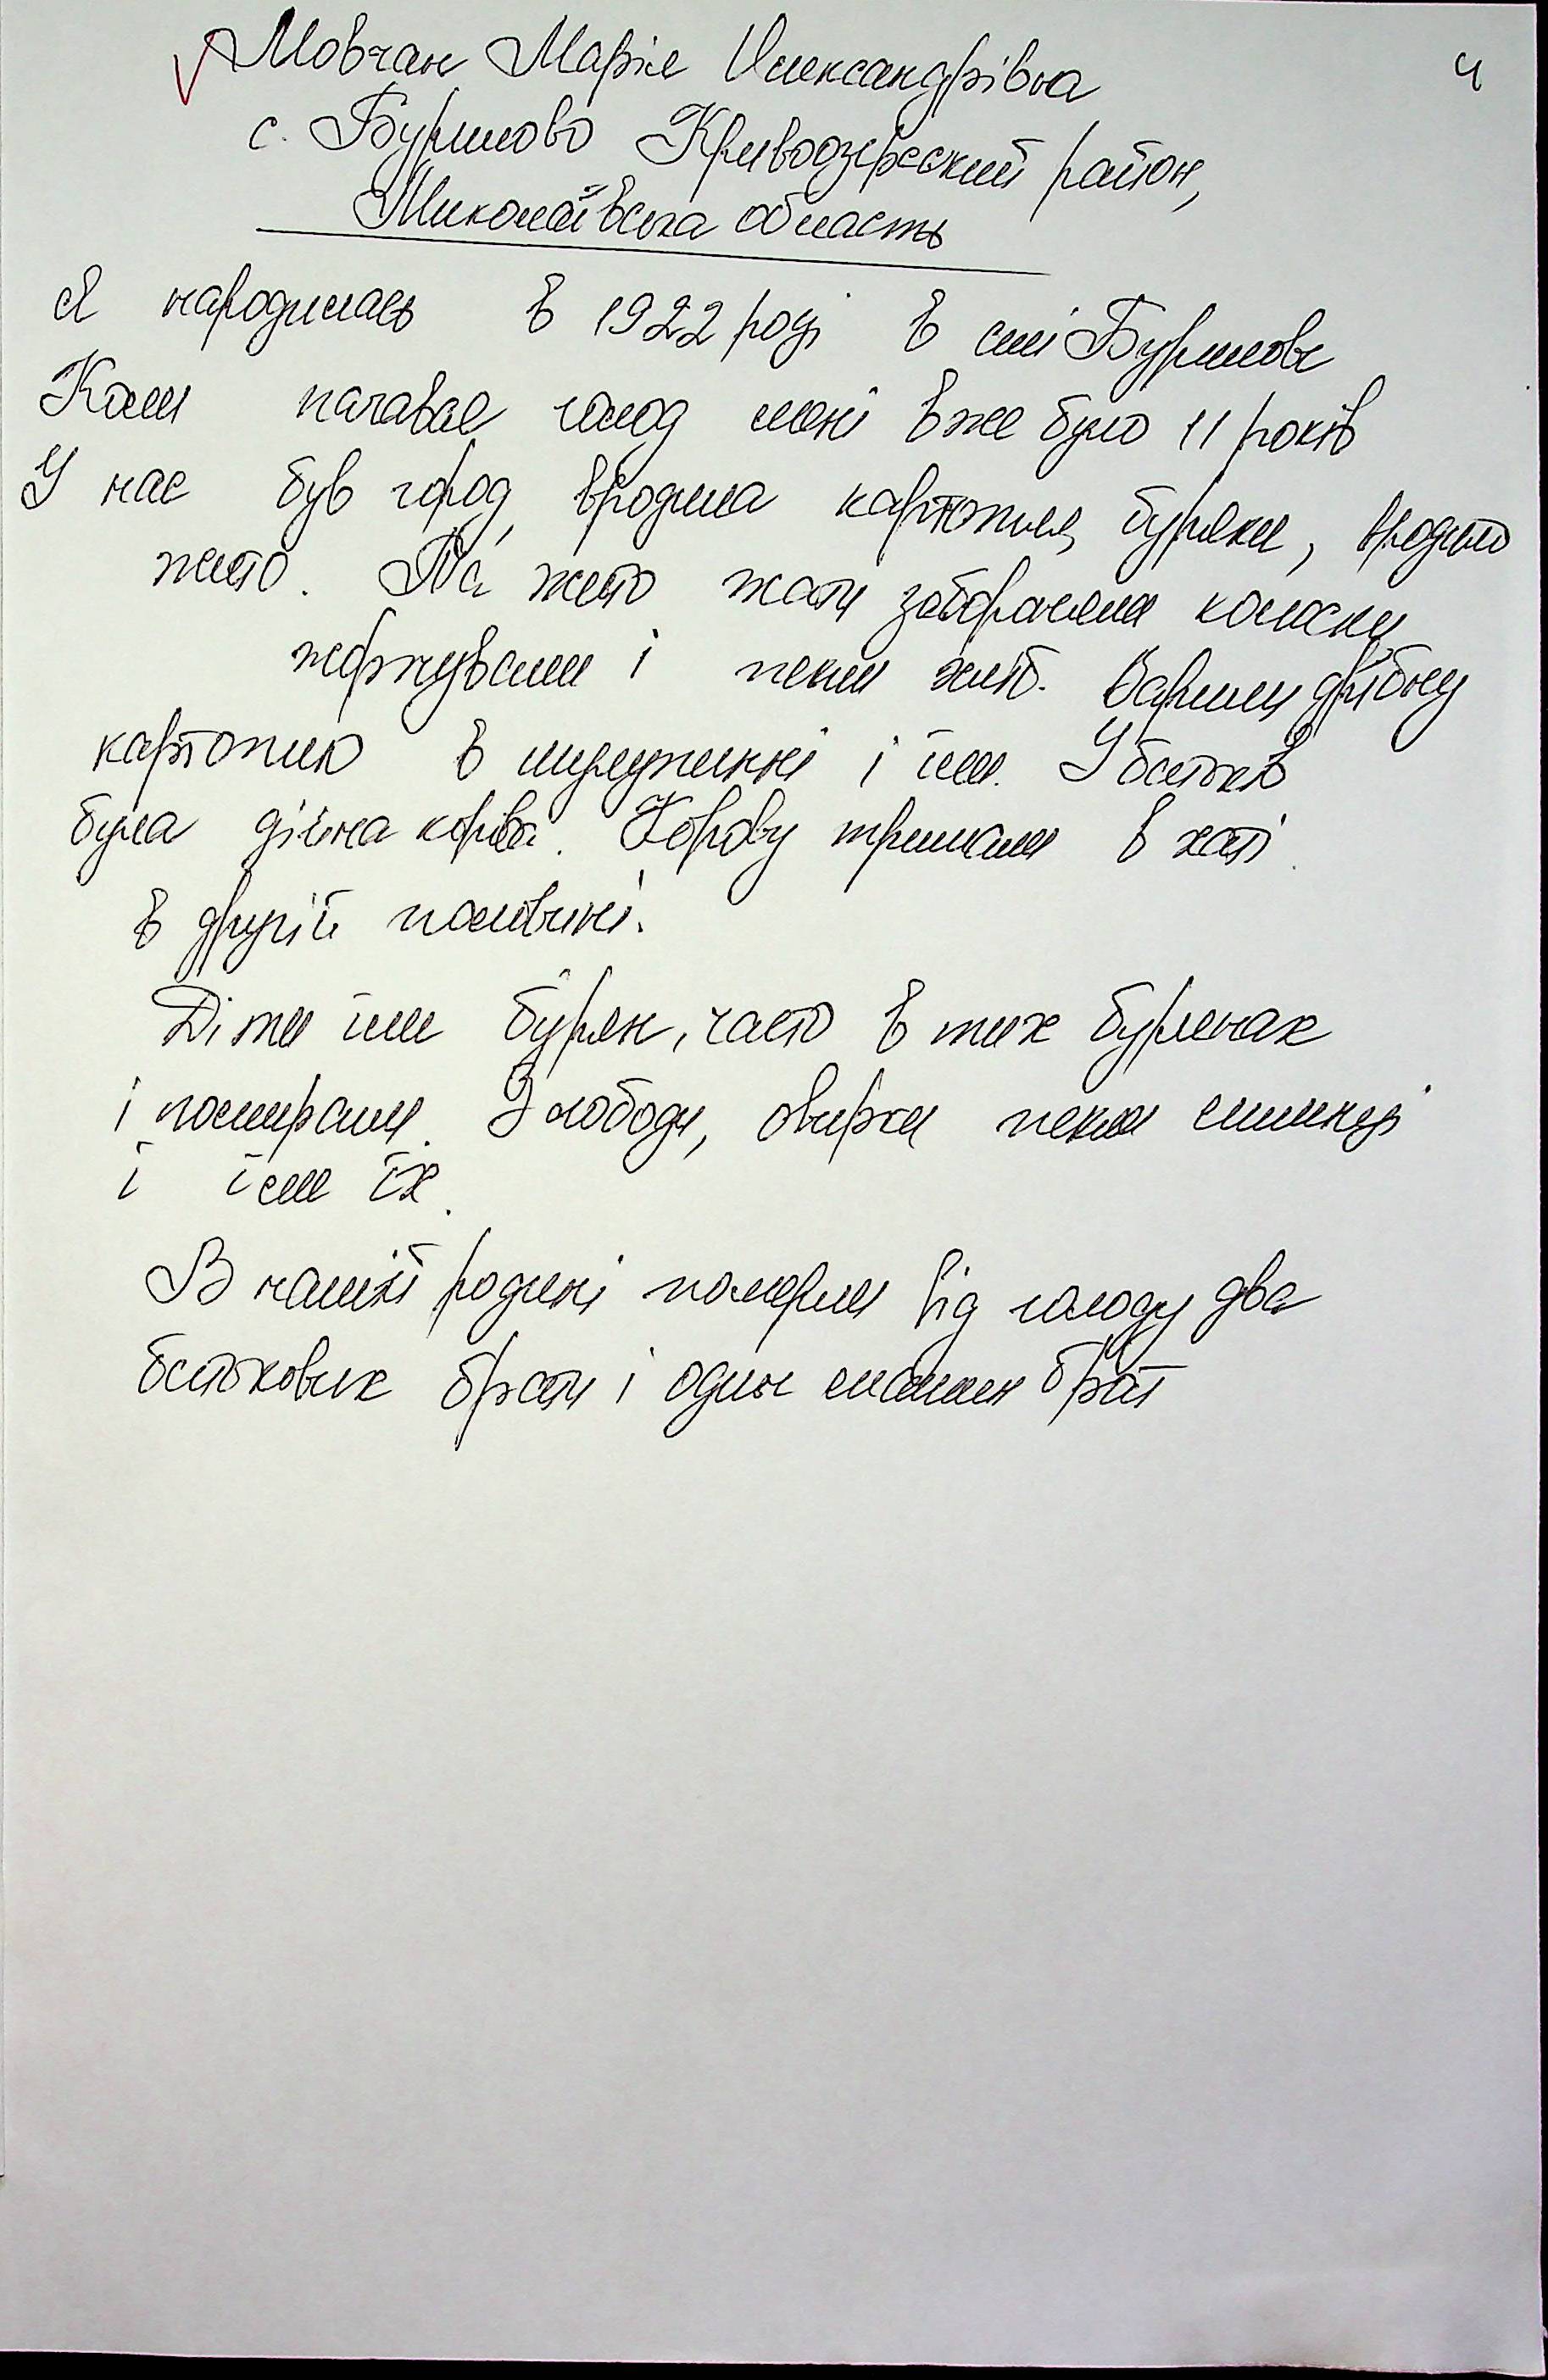 Мовчан Марія Олександрівна
4
с. Бурилово Кривоозерський район,
Миколаївська область
Я народилась в 1922 році в селі Бурилове
Коли почався голод мені вже було 11 років
У нас був город, вродила картопля, буряки, вродило
жито. Та жито жати забороняли колоски
жорнували і пекли хліб. Варили дрібну
картоплю в шкушпинні і їли. У батьків
була дійна корова. Корову тримали в хаті
в другій половині.
Діти їли бурян, часто в тих бурянах
і помирали. З лободи, овирки пекли
і їли їх.
В нашій родині померли від голоду два
батькових брати і один мамин брат